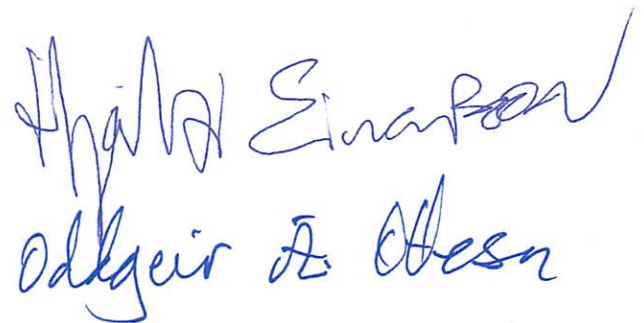 Hjalti Einarsson
Oddgeir Á. Ottesen